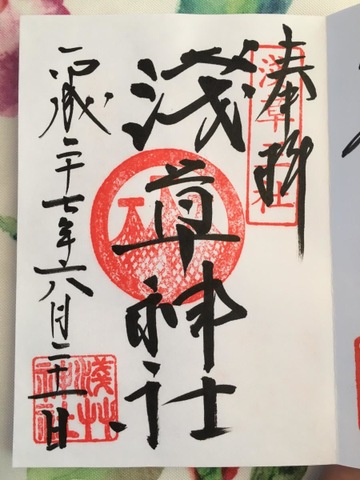 奉拝
浅草神社
平成二十七年六月二十一日
淺艸
神社